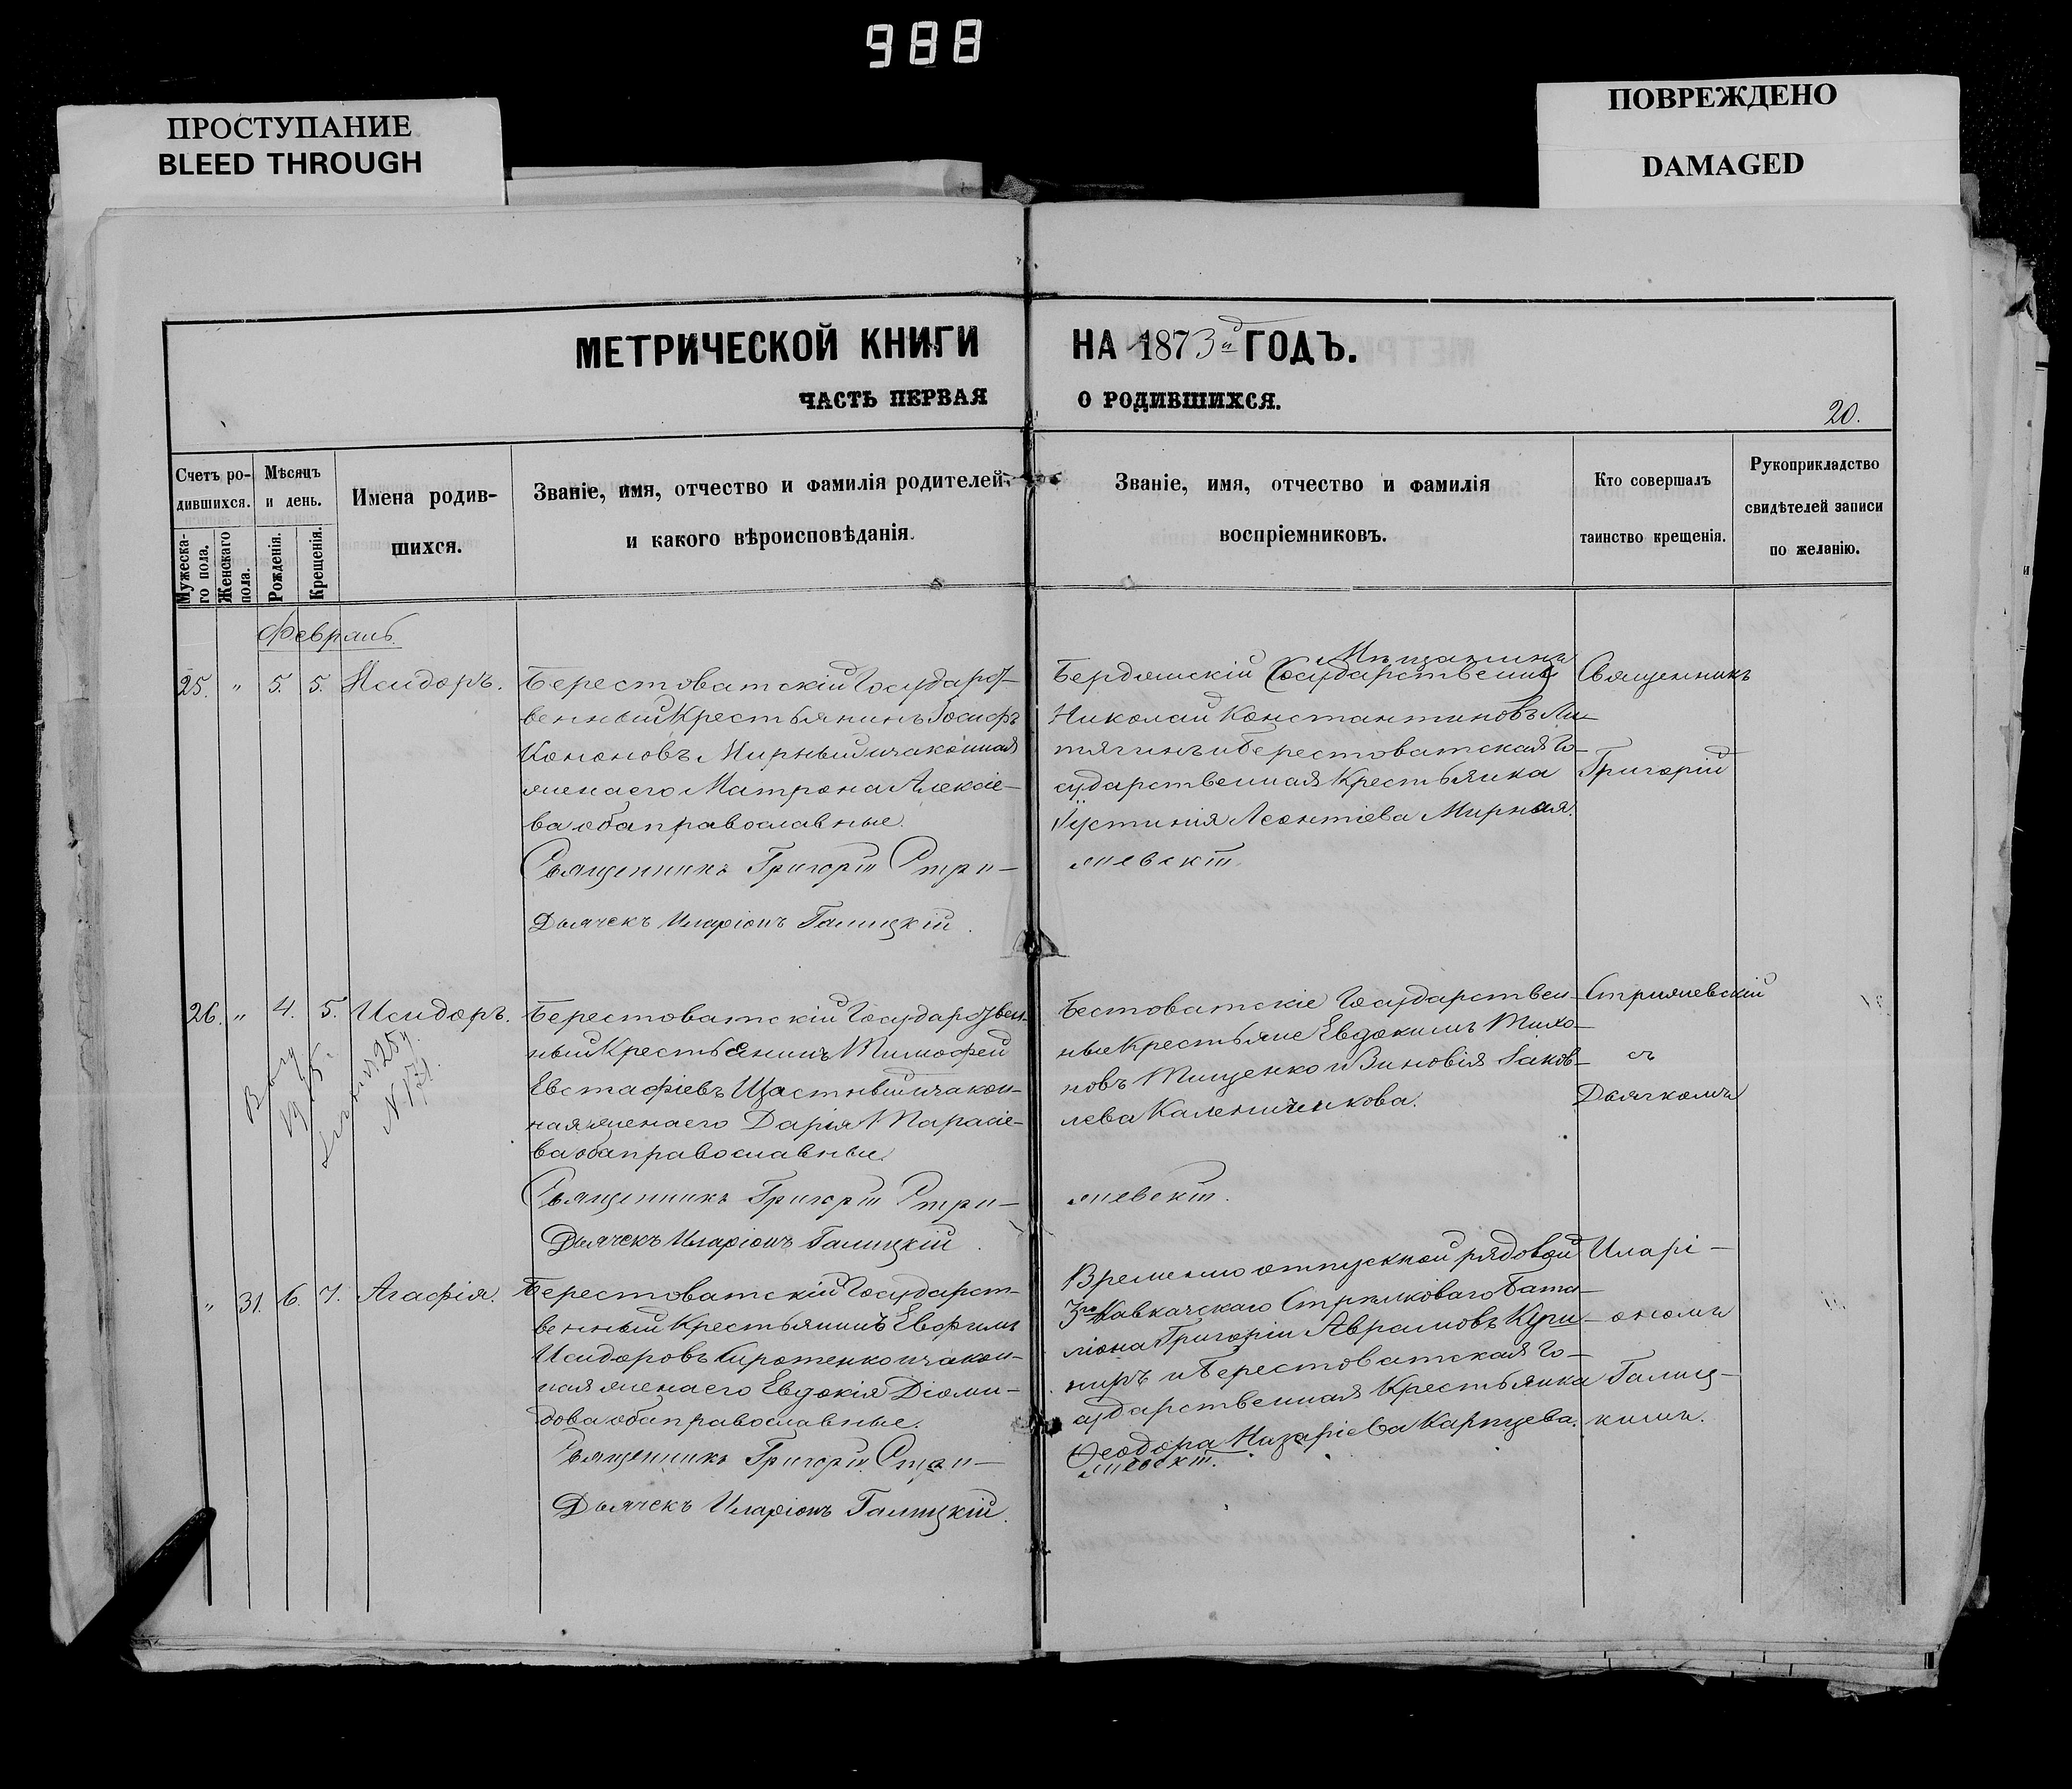 988
ПРОСТУПАНИЕ
BLEED THROUGH
ПОВРЕЖДЕНО
DAMAGED
МЕТРИЧЕСКОЙ КНИГИ НА 1873й ГОДЪ.
ЧАСТЬ ПЕРВАЯ О РОДИВШИХСЯ.
20.
Счетъ ро-
дившихся.
Мужеска-
го пола.
Женскаго
пола.
Мѣсяцъ
и день.
Рожденія.
Крещенія.
Имена родив-
шихся.
Званіе, имя, отчество и фамилія родителей,
и какого вѣроисповѣданія.
Званіе, имя, отчество и фамилія
воспріемниковъ.
Кто совершалъ
таинство крещенія.
Рукоприкладство
свидѣтелей записи
по желанію.
Февраль
25. " 5. 5. Исидоръ.
Берестоватскій Государст-
венный Крестьянинъ Іосифъ
Кононовъ Мирный и законная
жена его Матрона Алексіе-
ва оба православные.
Священникъ Григорій Стри-
Дьячекъ Иларіонъ Галицкій.
Мѣщанинъ
Бердянскій (Государственный)
Николай Константиновъ Ли-
тягинъ и Берестоватская Го-
сударственная Крестьянка
Іустинія Леонтіева Мирная.
жевскій.
Священникъ
Григорій
26. " 4. 5. Исидоръ.
1915.
N 171.
Берестоватскій Государствен-
ный Крестьянинъ Тимофей
Евстафіевъ Щастный и закон-
ная жена его Дарія Тарасіе-
ва оба православные.
Священникъ Григорій Стри-
Дьячекъ Иларіонъ Галицкій.
Бестоватскіе Государствен-
ные Крестьяне Евдокимъ Тихо-
новъ Тищенко и Зиновія Іаков-
лева Калениченкова.
жевскій.
Стрижевскій
съ
Дьячкомъ
" 31. 6. 7. Агафія.
Берестоватскій Государст-
венный Крестьянинъ Евфимъ
Исидоровъ Сиротенко и закон-
ная жена его Евдокія Діоми-
дова оба православные.
Священникъ Григорій Стри-
Дьячекъ Иларіонъ Галицкій.
Временно отпускной рядовой
3го Кавказскаго Стрѣлковаго Бата-
ліона Григорій Аврамовъ
и Берестоватская Го-
сударственная Крестьянка
Ѳеодора Назаріева Карпцева.
жевскій.
Иларі-
ономъ
Галиц-
кимъ.